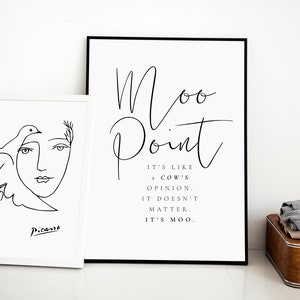 Moo
Point
IT'S LIKE
a COW'S
OPINION.
IT DOESN'T
MATTER.
IT'S MOO.
Picasso